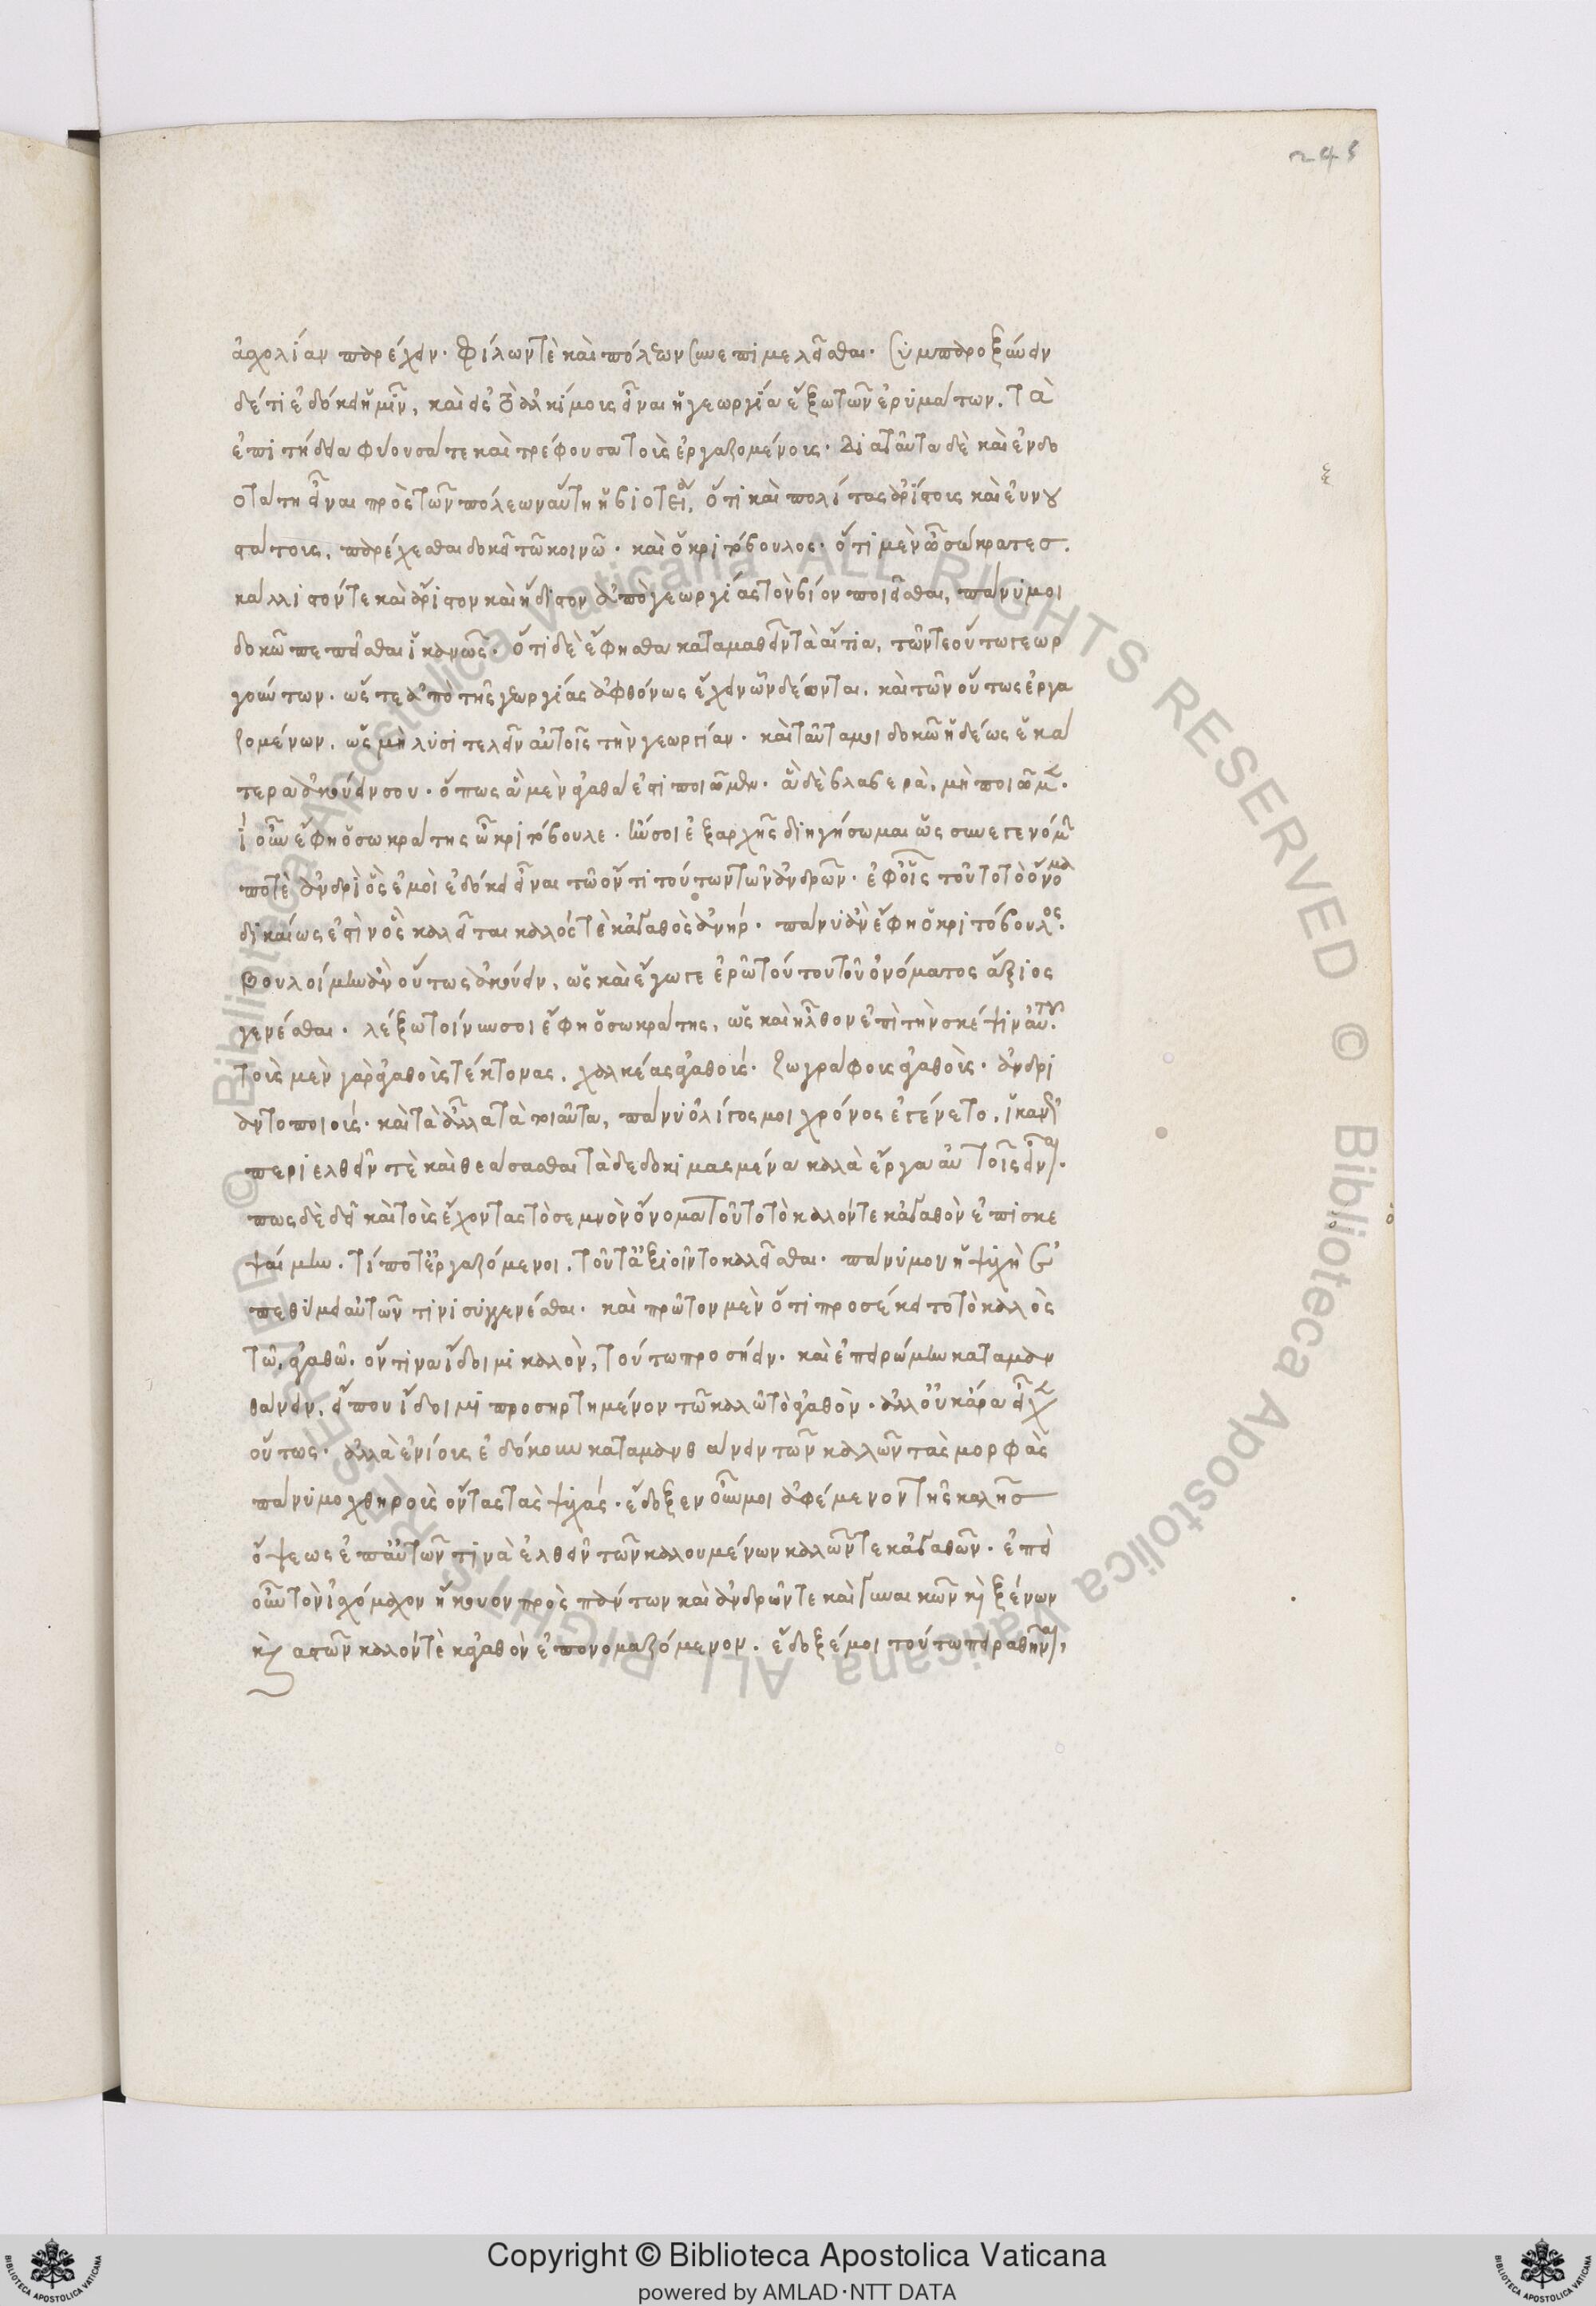 245
ἀσχολίαν παρέχειν· φίλων τὲ καὶ πόλεων συνεπιμελεῖσθαι. συμπαροξύνειν
δέ τι ἐδόκει ἡμῖν, καὶ εἰς τὸ ἀλκίμοις εἶναι ἡ γεωργία ἔξω τῶν ἐρυμάτων. τὰ
ἐπιτήδεια φύουσά τε καὶ τρέφουσα τοὺς ἐργαζομένους. διὰ ταῦτα δὲ καὶ ἐνδο
ξοτάτη εἶναι πρὸς τῶν πόλεων αὕτη ἡ βιοτεία, ὅτι καὶ πολίτας ἀρίστους καὶ εὐνου
στάτους, παρέχεσθαι δοκεῖ τῶ κοινῶ. καὶ ὁ κριτόβουλος· ὅτι μὲν ὦ σώκρατες.
κάλλιστόν τε καὶ ἄριστον καὶ ἥδιστον ἀπὸ γεωργίας τὸν βίον ποιεῖσθαι, πάνυ μοι
δοκῶ πεπεῖσθαι ἱκανῶς. ὅτι δὲ ἔφησθα καταμαθεῖν τὰ αἴτια, τῶν τε οὕτω γεωρ
γούντων. ὥστε ἀπὸ τῆς γεωργίας ἀφθόνως ἔχειν ὧν δέονται. καὶ τῶν οὕτως ἐργα
ζομένων. ὡς μὴ λυσιτελεῖν αὐτοῖς τὴν γεωργίαν. καὶ ταῦτά μοι δοκῶ ἡδέως ἑκά
τερα ἀκούειν σου. ὅπως ἃ μὲν ἀγαθά ἐστι ποιῶμεν. ἃ δὲ βλαβερὰ, μὴ ποιῶμεν.
τί οὖν ἔφη ὁ σωκράτης ὦ κριτόβουλε. ἤν σοι ἐξαρχῆς διηγήσωμαι ὡς συνεγενόμην
ποτὲ ἀνδρὶ ὃς ἐμοὶ ἐδόκει εἶναι τῶ ὄντι τούτων τῶν ἀνδρῶν. ἐφ' οἷς τοῦτο τὸ ὄνομα
δικαίως ἐστὶν ὃ καλεῖται καλός τὲ κἀγαθὸς ἀνήρ. πάνυ ἂν ἔφη ὁ κριτόβουλος.
βουλοίμην ἂν οὕτως ἀκούειν, ὡς καὶ ἔγωγε ἐρῶ τούτου τοῦ ὀνόματος ἄξιος
γενέσθαι. λέξω τοίνυν σοι ἔφη ὁ σωκράτης, ὡς καὶ ἦλθον ἐπὶ τὴν σκέψιν αὐτοῦ.
τοὺς μὲν γὰρ ἀγαθοὺς τέκτονας. χαλκέας ἀγαθούς. ζωγράφους ἀγαθοὺς. ἀνδρι
αντοποιούς. καὶ τὰ ἄλλα τὰ τοιαῦτα, πάνυ ὀλίγος μοι χρόνος ἐγένετο. ἱκανὸς
περιελθεῖν τὲ καὶ θεάσασθαι τὰ δεδοκιμασμένα καλὰ ἔργα αὐτοῖς εἶναι.
πως δὲ δὴ καὶ τοὺς ἔχοντας τὸ σεμνὸν ὄνομα τοῦτο τὸ καλόν τε κἀγαθὸν ἐπισκε
ψαίμην. τί ποτ' ἐργαζόμενοι. τοῦτ' ἀξιοῖντο καλεῖσθαι. πάνυ μου ἡ ψυχὴ ἐ
πεθύμει αὐτῶν τινὶ συγγενέσθαι. καὶ πρῶτον μὲν ὅτι προσέκειτο τὸ καλὸς
τῶ ἀγαθῶ. ὅντινα ἴδοιμι καλὸν, τούτω προσήειν. καὶ ἐπειρώμην καταμαν
θάνειν, εἴ που ἴδοιμι προσηρτημένον τῶ καλῶ τὸ ἀγαθὸν. ἀλλ' οὐκ ἄρα εἶχεν
οὕτως. ἀλλὰ ἐνίους ἐδόκουν καταμανθάνειν τῶν καλῶν τὰς μορφὰς
πάνυ μοχθηροὺς ὄντας τὰς ψυχάς. ἔδοξεν οὖν μοι ἀφέμενον τῆς καλῆς
ὄψεως ἐπ' αὐτῶν τινὰ ἐλθεῖν τῶν καλουμένων καλῶν τε κἀγαθῶν. ἐπεὶ
οὖν τὸν ἰσχόμαχον ἤκουον πρὸς πάντων καὶ ἀνδρῶν τε καὶ γυναικῶν καὶ ξένων
καὶ ἀστῶν καλόν τὲ κἀγαθὸν ἐπονομαζόμενον. ἔδοξέ μοι τούτω πειραθῆναι,
Copyright © Biblioteca Apostolica Vaticana
powered by AMLAD·NTT DATA